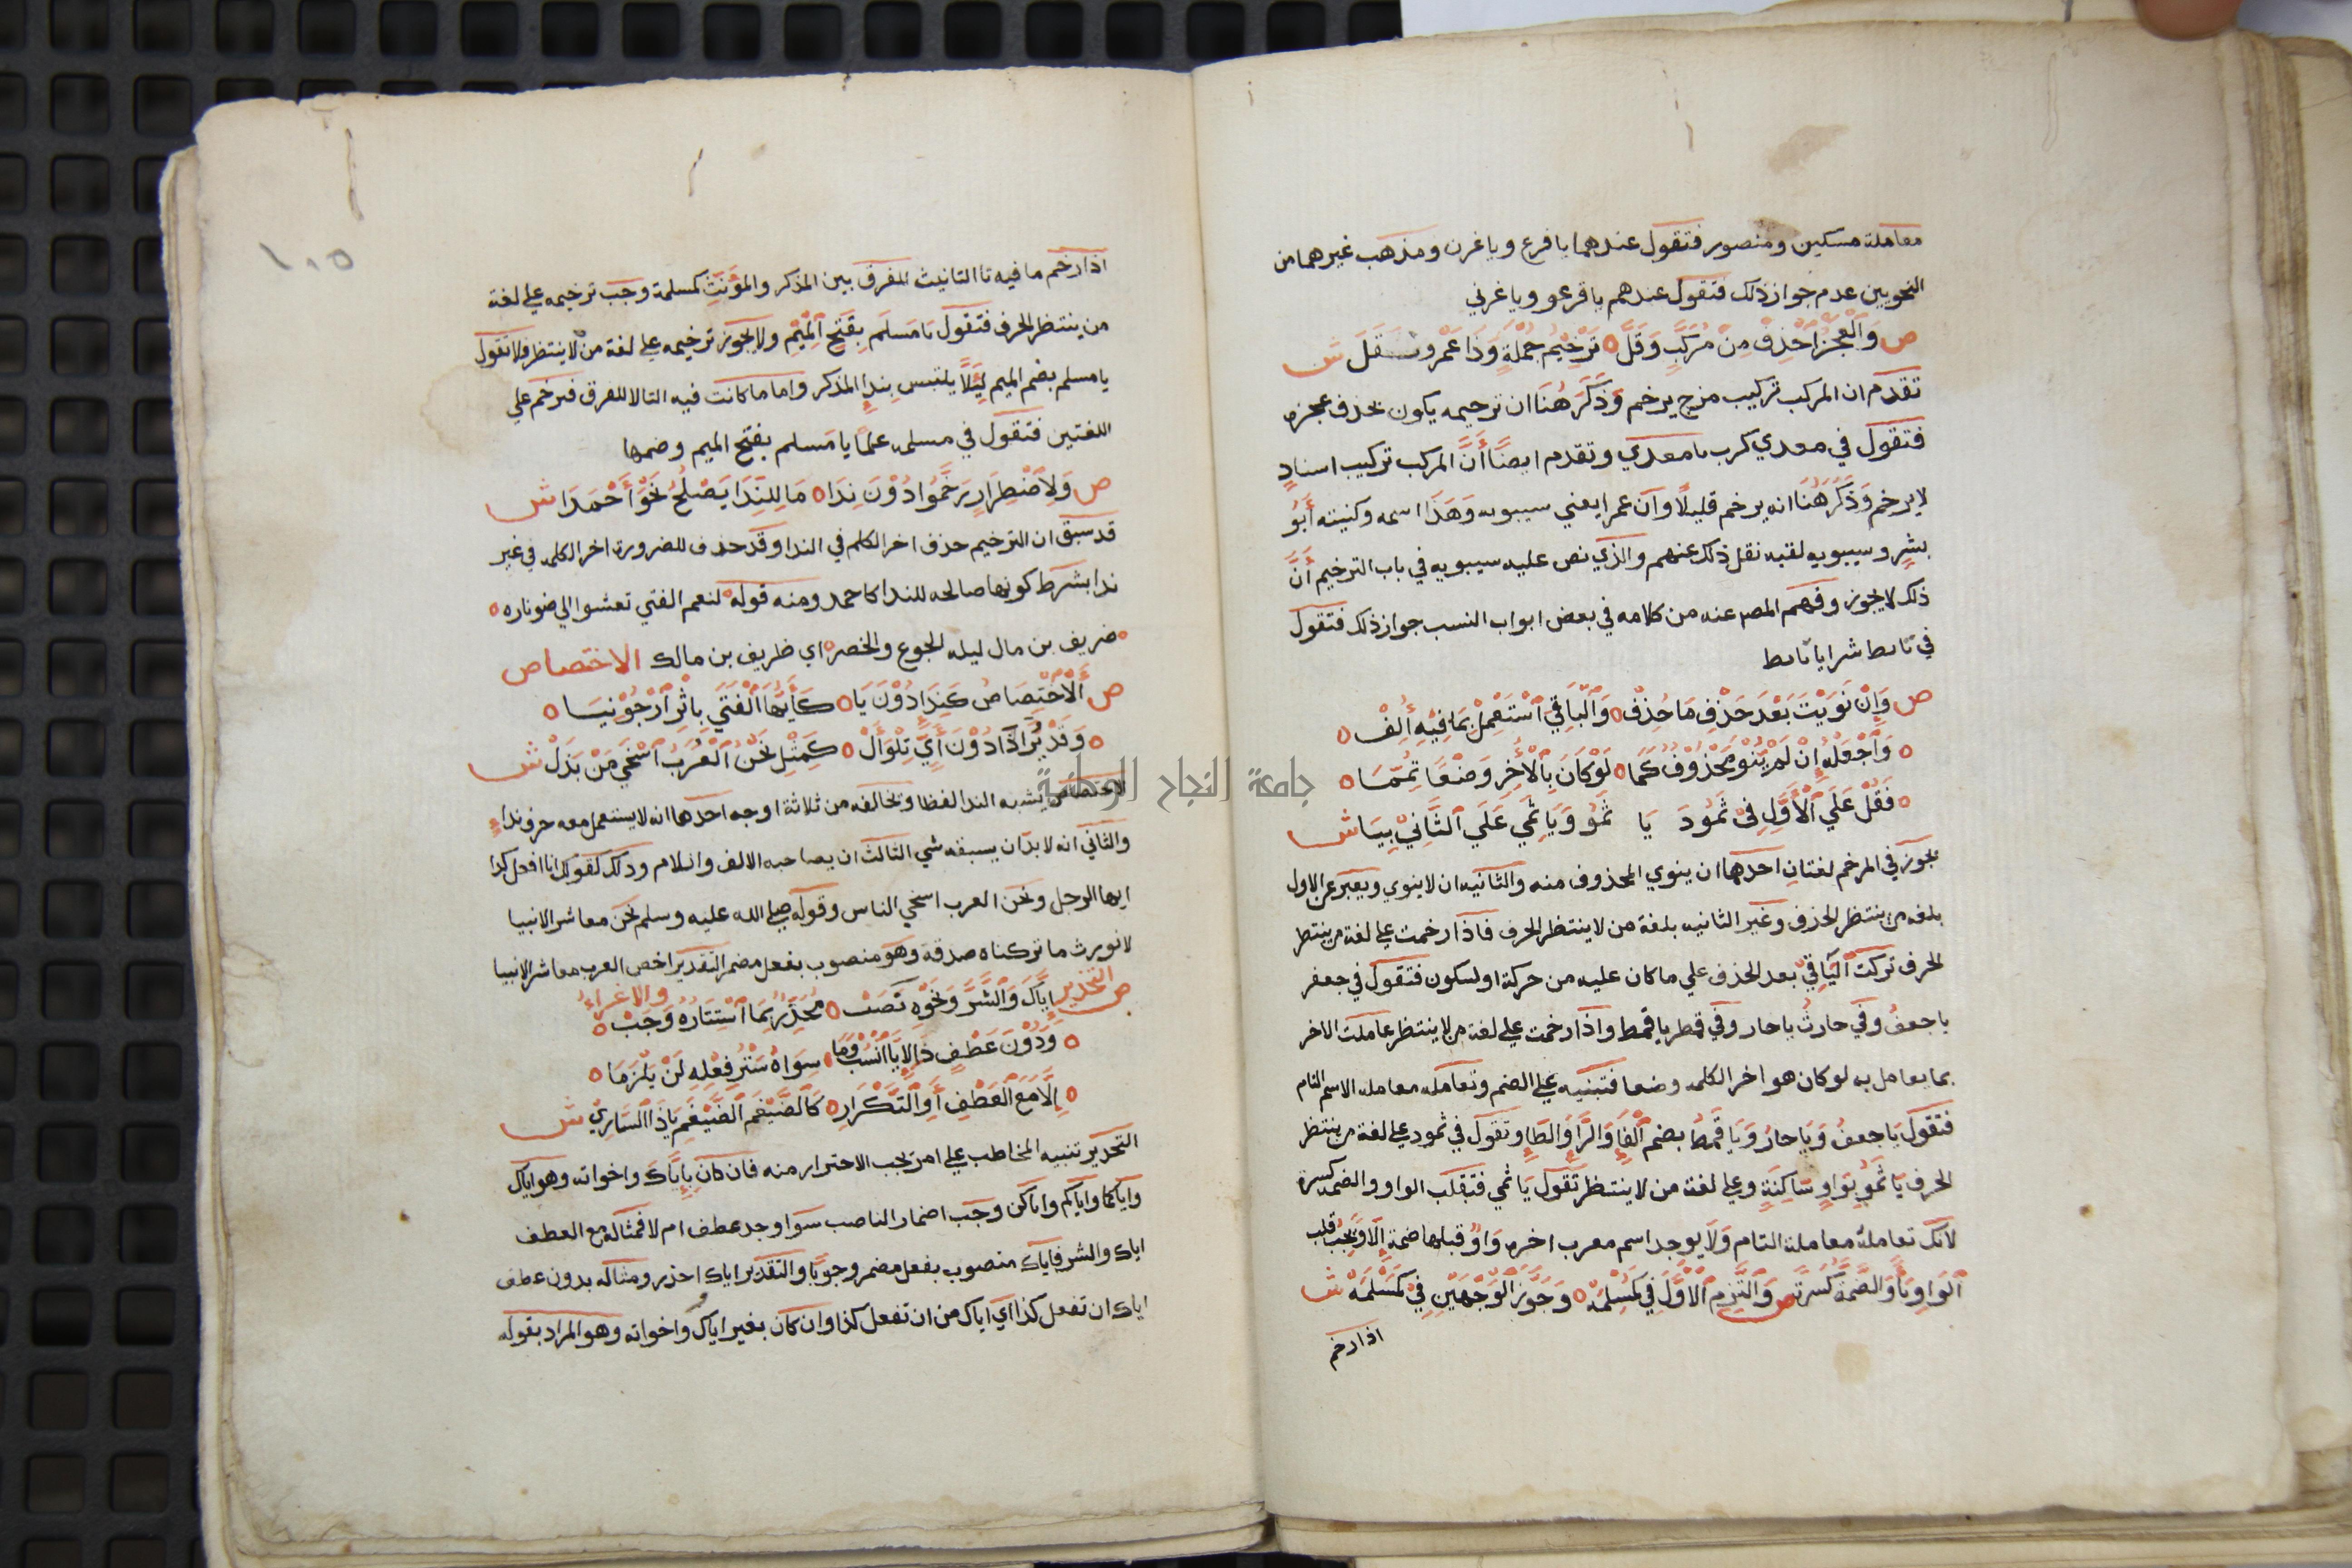 معاملة مسكين ومنصور فتقول عندهما يا فرع ويا غرن ومذهب غيرهما من
النحويين عدم جواز ذلك فتقول عندهم يا فرعو ويا غرني
ص وَالْعَجُزَ احْذِفْ مِنْ مُرَكَّبٍ وَقَلَّ ه تَرْخِيْمُ جُمْلَةٍ وَذَا عَمْرٌو نَقَلَ ش
تقدم ان المركب تركيب مزج يرخم وَذَكَرَ هُنَا ان ترخيمه يكون بحذف عجزه
فتقول في معدي كرب يا معدي وتقدم ايضًا أَنَّ المركب تركيب اسنادٍ
لا يرخم وَذَكَرَ هُنَا انه يرخم قليلًا وان عمرا يعني سيبويه وَهَذَا اسمه وكنيته أَبُو
بشرٍ وسيبويه لقبه نقل ذلك عنهم والذي نص عليه سيبويه في باب الترخيم أَنَّ
ذلك لا يجوز وفهم المص عنه من كلامه في بعض ابواب النسب جواز ذلك فتقول
في تابط شرا يا تابط
ص وَإِنْ نَوَيْتَ بَعْدَ حَذْفِ مَا حُذِفْ ه وَالْبَاقِيَ اسْتَعْمِلْ بِمَا فِيْهِ أُلِفْ ه
ه وَاجْعَلْهُ إِنْ لَمْ يُنْوَ مَحْذُوْفٌ كَمَا ه لَوْ كَانَ بِالْأَخِرِ وَضْعًا تُمِّمَا ه
ه فَقُلْ عَلَي الْأَوَّلِ فِيْ ثَمُوْدَ يَا ثَمُو وَيَا ثَمِي عَلَي الثَّانِيْ بِيَا ش
يجوز في المرخم لغتان احدها ان ينوي المحذوف منه والثانيه ان لا ينوي ويعبر عن الاول
بلغه من ينتظر الحذف وعن الثانيه بلغة من لا ينتظر الحرف فاذا رخمت علي لغة من ينتظر
الحرف تركت الْبَاقِيْ بعد الحذف علي ما كان عليه من حركة او سكون فتقول في جعفر
يا جعفُ وفي حارثُ يا حار وفي قمطر يا قمط واذا رخمت علي لغة من لا ينتظر عاملت الاخر
بما يعامل به لو كان هو اخر الكلمه وضعا فتبنيه علي الضم وتعامله معامله الاسم التام
فتقول يَا جعفُ وَيَا حارُ وَيَا قِمَطُ بضم الْفَاءِ وَالرَّاءِ وَالطَّاءِ وتقول في ثمود علي لغة من ينتظر
الحرف يَا ثَمُوْ بِوَاوٍ سَاكِنَةٍ وعلي لغة من لا ينتظر تقول يَا ثمي فتقلب الواو والضمه كسرة
لانك تعامله معاملة التام وَلَا يوجد اسم معرب اخره وَاوٌ قبلها ضمة إِلَّا وَيَجِبُ قلب
الْوَاوِ يَاءً وَالضَّمَّةِ كَسْرَةً ص وَالْتَزِمِ الْأَوَّلَ فِي كَمُسْلِمَهْ ه وَجَوِّزِ الْوَجْهَيْنِ فِيْ كَمَسْلَمَهْ ش
اذا رخم
١٠٥
اذا رخم ما فيه تا التانيث للفرق بين المذكر والمؤنث كمسلمة وجب ترخيمه علي لغة
من ينتظر الحرف فتقول يا مسلم بفتح الميم ولا يجوز ترخيمه علي لغة من لا ينتظر فلا تقول
يا مسلم بضم الميم لِئَلَّا يلتبس بندا المذكر واما ما كانت فيه التا لا للفرق فيرخم علي
اللغتين فتقول في مسلمه علمًا يا مسلم بفتح الميم وضمها
ص وَلِاضْطِرَارٍ رَخَّمُوا دُوْنَ نِدَا ه مَا لِلنِّدَا يَصْلُحُ نَحْوُ أَحْمَدَا ش
قد سبق ان الترخيم حذف اخر الكلم في الندا وقد حذف للضرورة اخر الكلمه في غير
ندا بشرط كونها صالحه للندا كاحمد ومنه قوله لنعم الفتي تعشوا الي ضو ناره ه
ه ضريف بن مال ليله الجوع والخصر ه اي ظريف بن مالك الاختصاص
ص أَلْاخْتِصَاصُ كَنِدَاءٍ دُوْنَ يَا ه كَأَيُّهَا الْفَتَي بِاثْرِ ارْجُوْنِيَا ه
ه وَقَدْ يُرَا ذَا دُوْنَ أَيٍّ تِلْوَ أَلْ ه كَمِثْلِ نَحْنُ الْعُرْبَ اسْخَي مَنْ بَذَلْ ش
الاختصاص يشبه الندا لفظا ويخالفه من ثلاثة اوجه احدها انه لا يستعمل معه حرف نداءٍ
والثاني انه لا بد ان يسبقه شي الثالث ان يصاحبه الالف واللام وذلك كقولك انا افعل كذا
ايها الرجل ونحن العرب اسخي الناس وقوله صلي الله عليه وسلم نحن معاشر الانبيا
لا نورث ما تركناه صدقه وهو منصوب بفعل مضمر التقدير اخص العرب معاشر الانبيا
التحذير والاغراء
ص إِيَّاكَ وَالشَّرَّ وَنَحْوِهِ نَصَبْ ه مُحَذِّرٌ بِمَا اسْتِتَارُهُ وَجَبْ ه
ه وَدُوْنَ عَطْفٍ ذَا لِإِيَّا انْسُبْ وَمَا ه سِوَاهُ سَتْرُ فِعْلِهِ لَنْ يَلْزَمَا ه
ه إِلَّا مَعَ الْعَطْفِ أَوِ التَّكْرَارِ ه كَالضَّيْغَمَ الضَّيْغَمَ يَا ذَا السَّارِيْ ش
التحذير تنبيه المخاطب علي امر يجب الاحتراز منه فان كان بِإِيَّاكَ واخواته وهو اياك
واياكما واياكم واياكن وجب اضمار الناصب سوا وجد عطف ام لا فمثاله مع العطف
اياك والشر فاياك منصوب بفعل مضمر وجوبًا والتقدير اياك احذر ومثاله بدون عطف
اياك ان تفعل كذا اي اياك من ان تفعل كذا وان كان بغير اياك واخواته وهو المراد بقوله
جامعة النجاح الوطنية